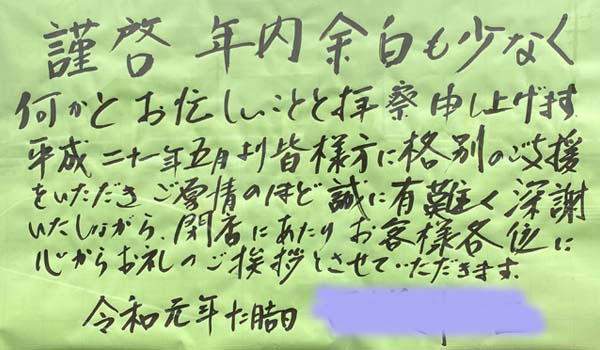 謹啓 年内余白も少なく
何かとお忙しいことと拝察申し上げます
平成二十一年五月より皆様方に格別のご支援
をいただきご厚情のほど誠に有難く深謝
いたしながら、閉店にあたりお客様各位に
心からお礼のご挨拶とさせていただきます。
令和元年十二月吉日